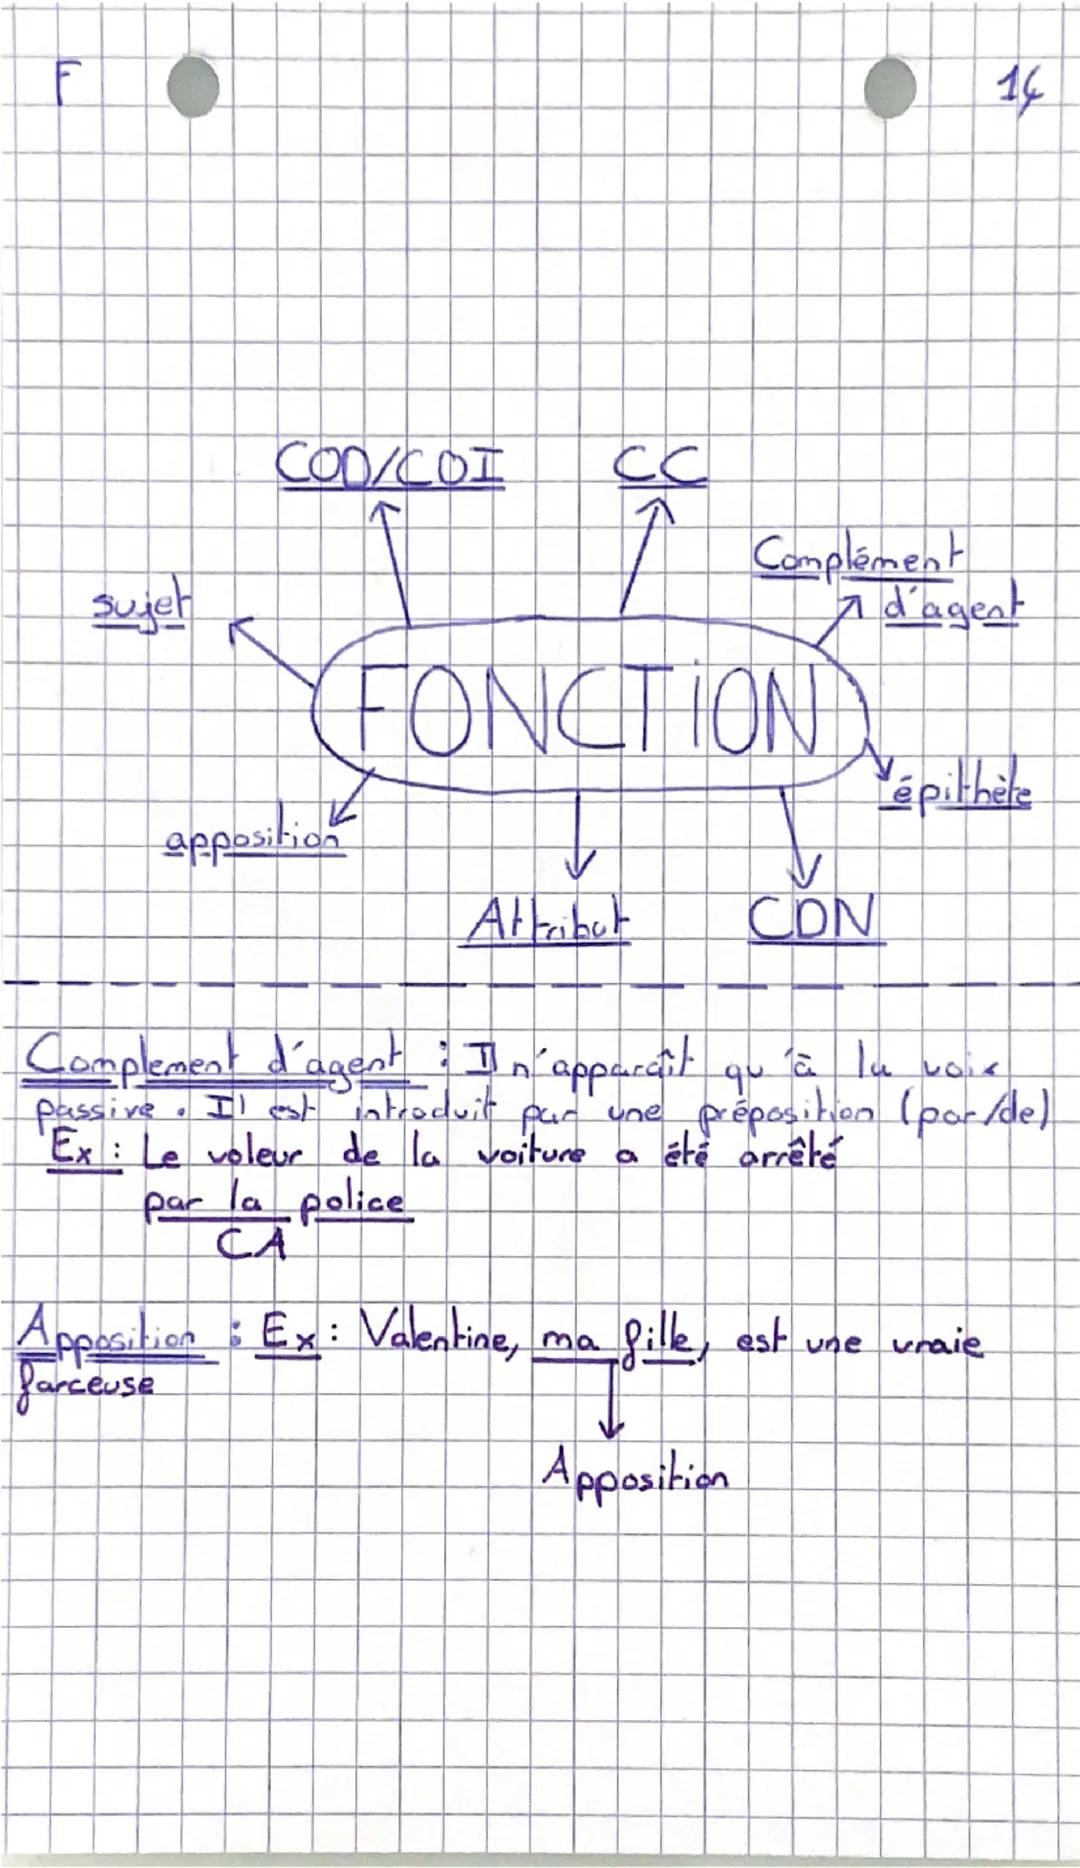 F 14
COD/COI CC
Complément
sujet d'agent
FONCTiON
épithète
apposition
Attribut CDN
Complement d'agent : Il n'apparaît qu'à la voix
passive. Il est introduit par une préposition (par/de)
Ex : Le voleur de la voiture a été arrêté
par la police
CA
Apposition : Ex : Valentine, ma fille, est une vraie
farceuse
Apposition